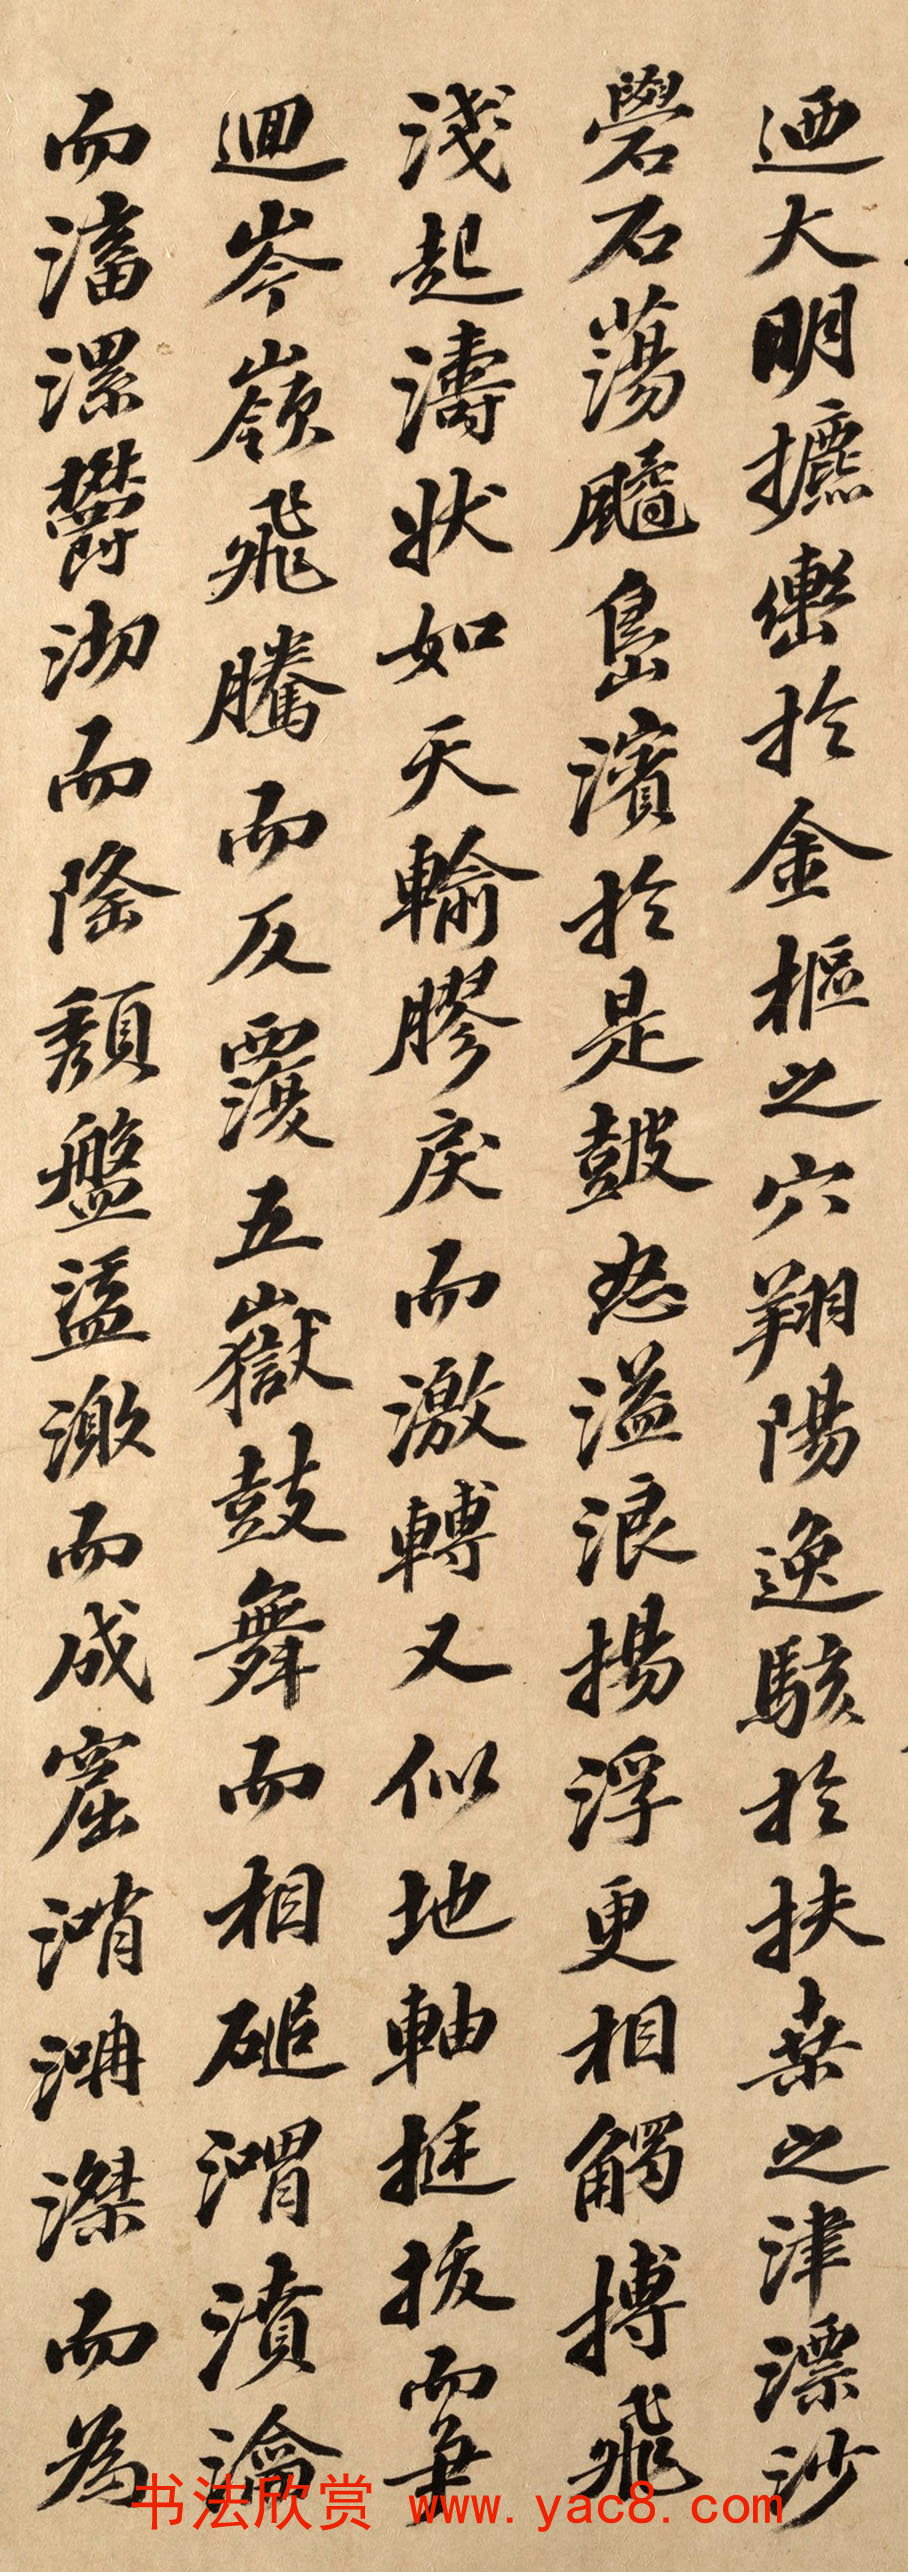 迺大明摭轡於金樞之穴翔陽逸駭於扶桑之津漂沙
礐石蕩颹島濱於是鼓怒溢浪揚浮更相觸搏飛
淺起濤狀如天輪膠戾而激轉又似地軸挺拔而爭
迴岑嶺飛騰而反覆五嶽鼓舞而相磓渭濆淪
而滀漯鬱沏而隆頹盤盓激而成窟㴥㴸滐而為
书法欣赏 www.yac8.com